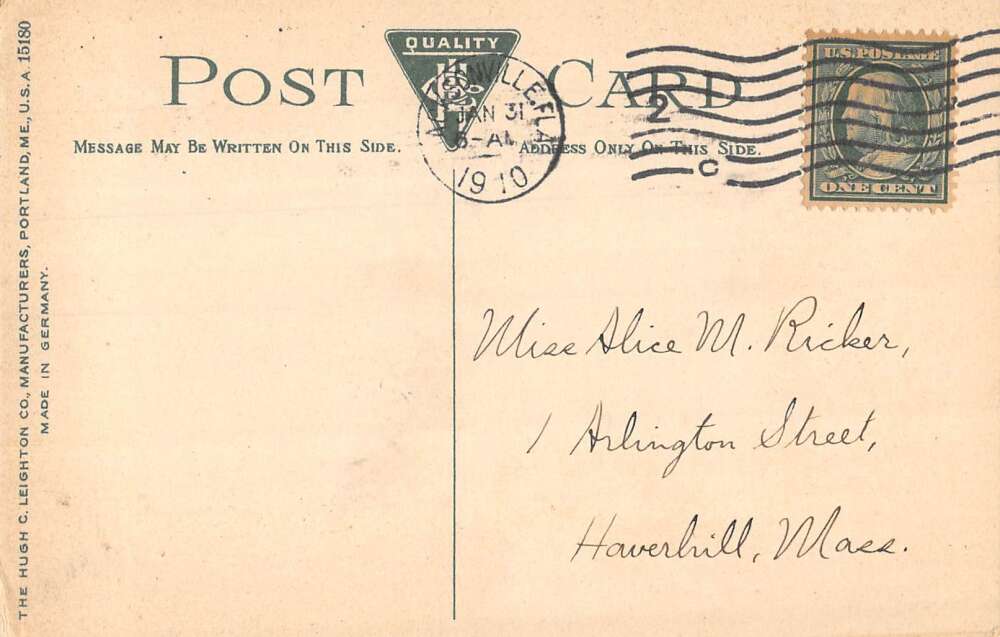 THE HUGH C. LEIGHTON CO., MANUFACTURERS, PORTLAND, ME., U.S.A. 15180
MADE IN GERMANY.
POST CARD
QUALITY
MESSAGE MAY BE WRITTEN ON THIS SIDE.
ADDRESS ONLY ON THIS SIDE.
JACKSONVILLE, FLA
JAN 31
1910
2
C
U.S. POSTAGE
ONE CENT
Miss Alice M. Ricker,
1 Arlington Street,
Haverhill, Mass.